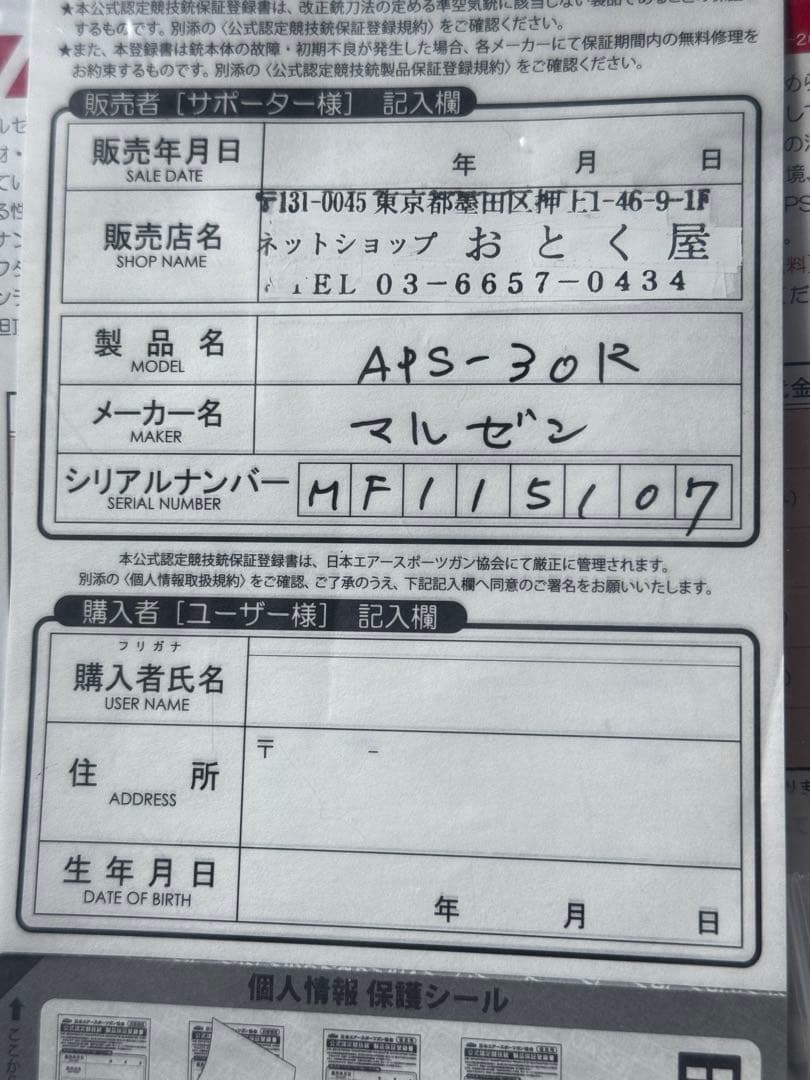 ★本公式認定競技銃保証登録書は、改正銃刀法の定める準空気銃に該当しない製品であることの保証
するものです。別添の〈公式認定競技銃保証登録規約〉をご確認ください。
★また、本登録書は銃本体の故障・初期不良が発生した場合、各メーカーにて保証期間内の無料修理を
お約束するものです。別添の〈公式認定競技銃製品保証登録規約〉をご確認ください。
販売者［サポーター様］ 記入欄
販売年月日
SALE DATE
年 月 日
販売店名
SHOP NAME
〒131-0045 東京都墨田区押上1-46-9-1F
ネットショップ おとく屋
TEL 03-6657-0434
製品名
MODEL
APS-30R
メーカー名
MAKER
マルゼン
シリアルナンバー
SERIAL NUMBER
MF115107
本公式認定競技銃保証登録書は、日本エアースポーツガン協会にて厳正に管理されます。
別添の〈個人情報取扱規約〉をご確認、ご了承のうえ、下記記入欄へ同意のご署名をお願いいたします。
購入者［ユーザー様］ 記入欄
フリガナ
購入者氏名
USER NAME
住所
ADDRESS
〒 -
生年月日
DATE OF BIRTH
年 月 日
個人情報 保護シール
ここから